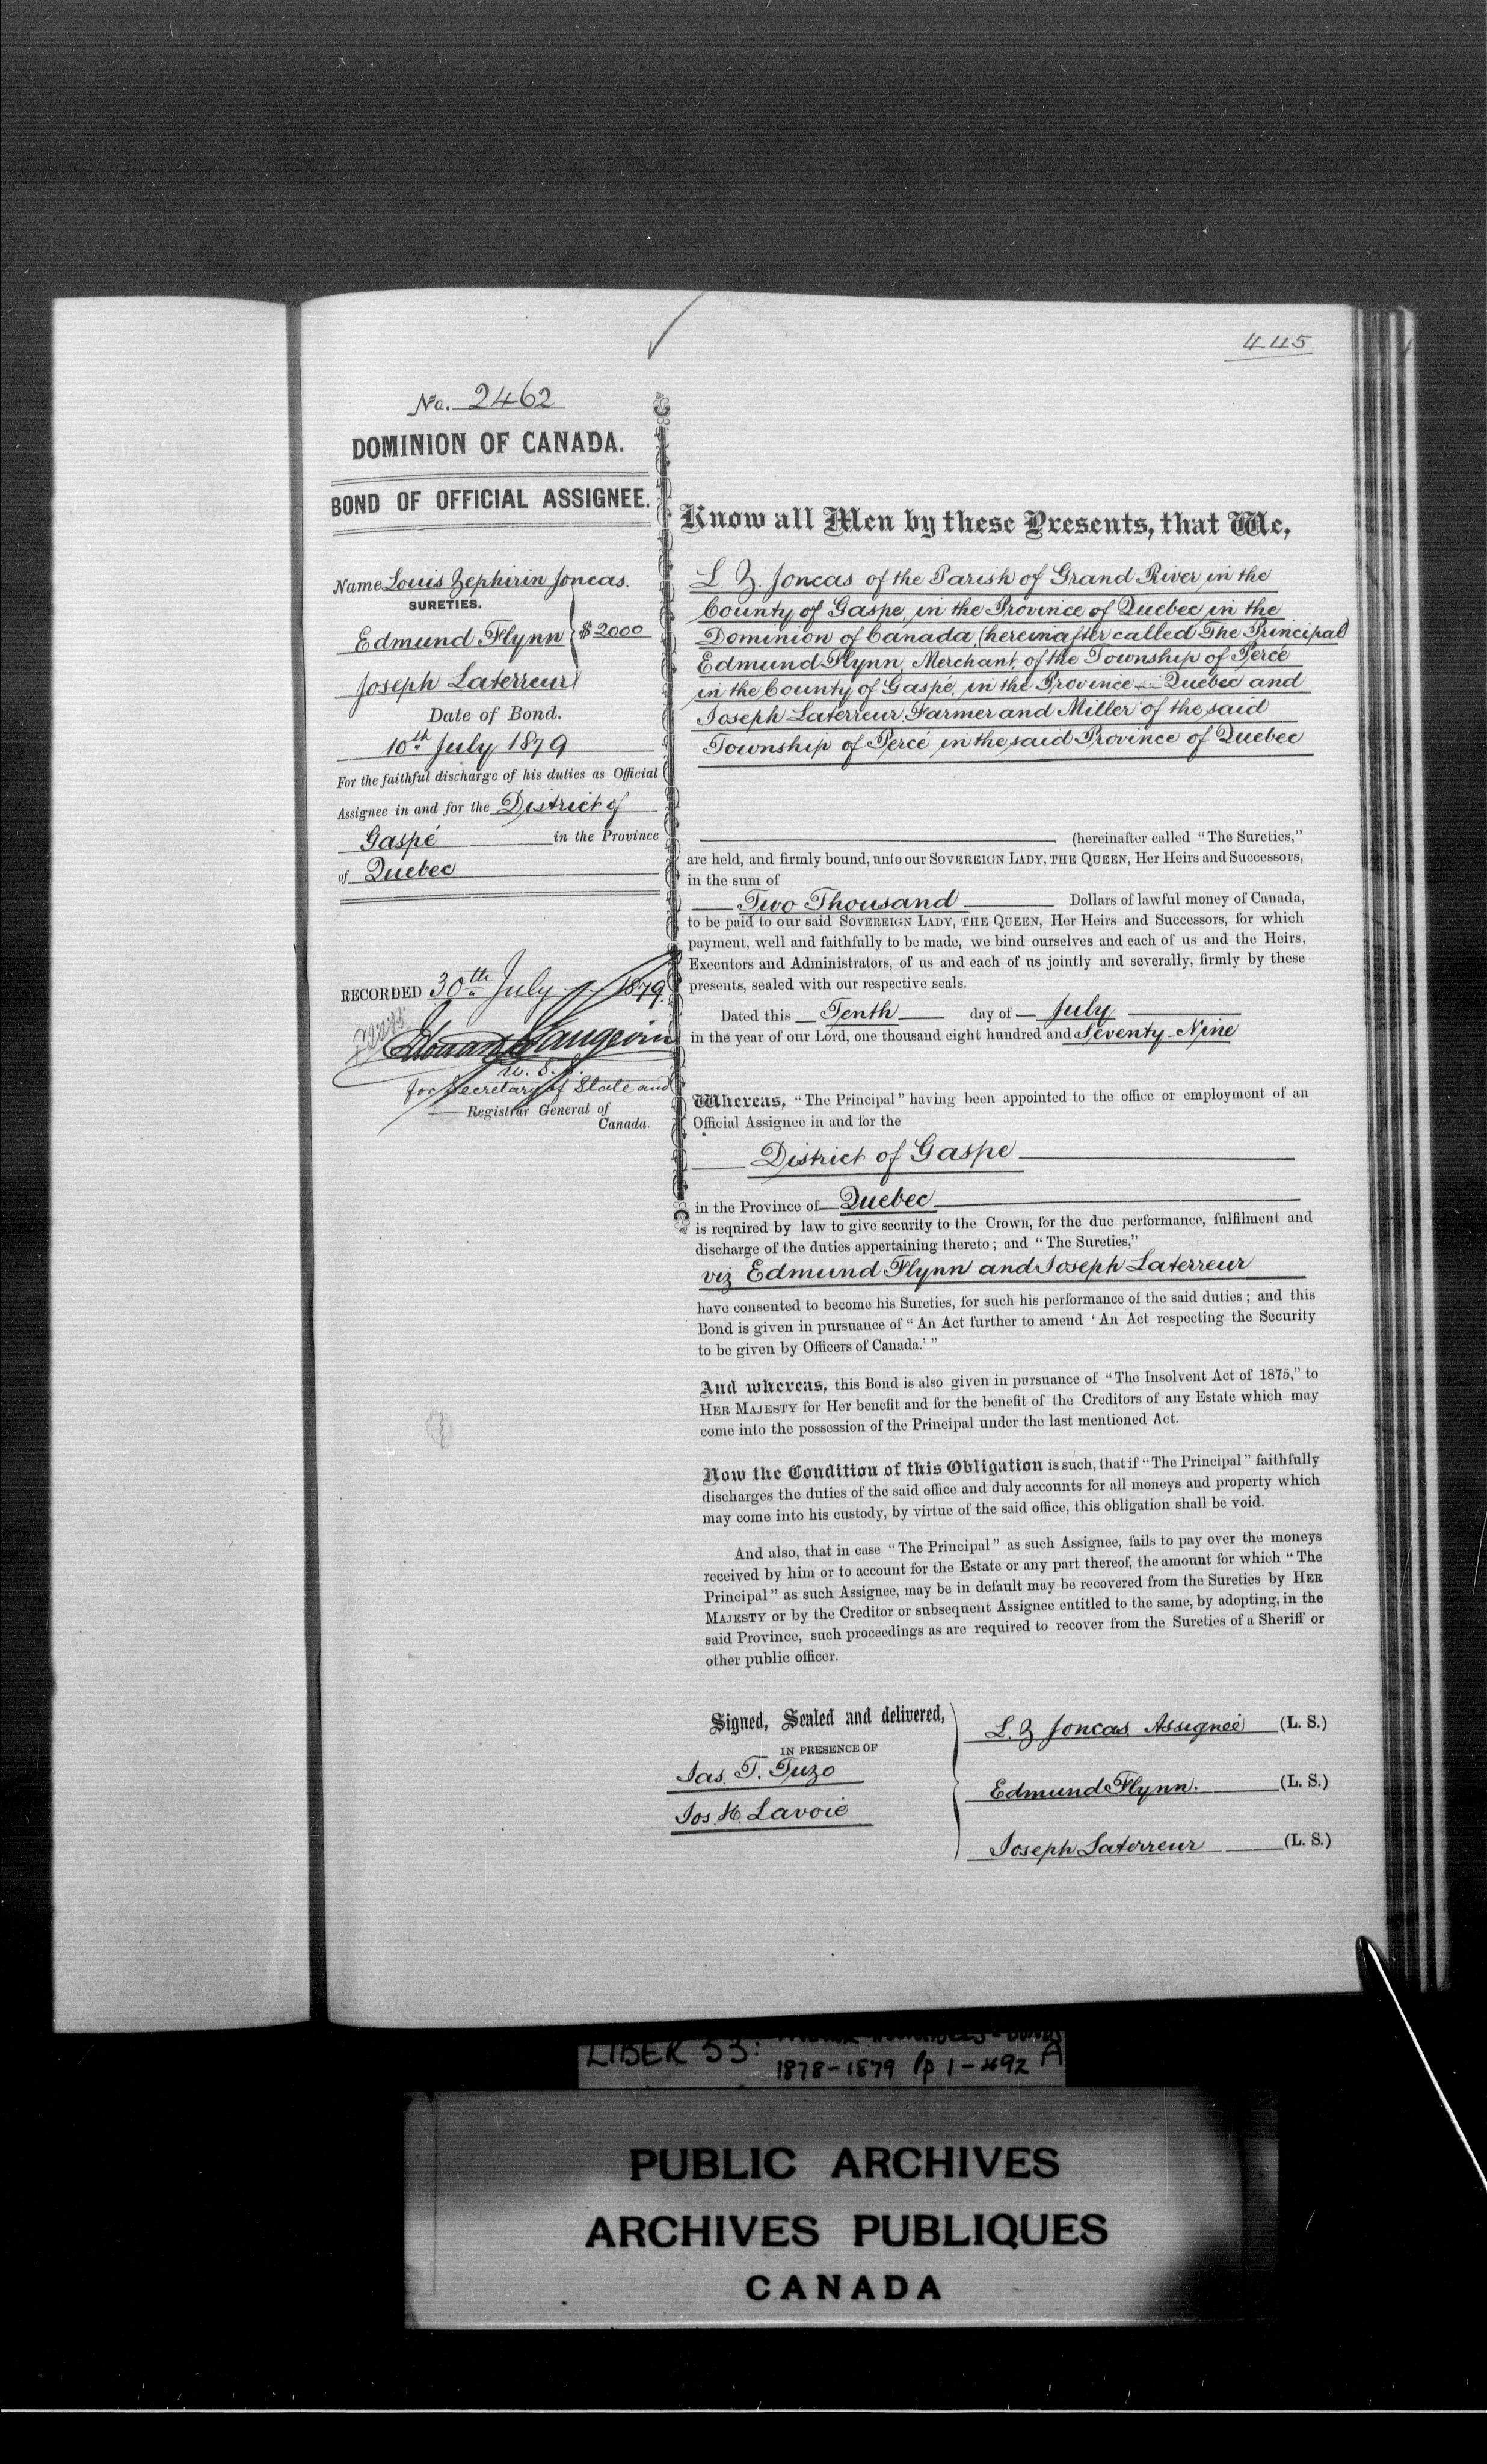 445
No. 2462
DOMINION OF CANADA.
BOND OF OFFICIAL ASSIGNEE.
Name Louis Zephirin Joncas.
SURETIES.
Edmund Flynn } $2000
Joseph Laterreur
Date of Bond.
10th July 1879
For the faithful discharge of his duties as Official
Assignee in and for the District of
Gaspé in the Province
of Quebec
RECORDED 30th July 1879
Edouard J Langevin
U. S. S.
for Secretary of State and
Registrar General of
Canada.
Know all Men by these Presents, that We,
L. Z. Joncas of the Parish of Grand River in the
County of Gaspe, in the Province of Quebec in the
Dominion of Canada, (hereinafter called The Principal)
Edmund Flynn, Merchant, of the Township of Percé
in the County of Gaspé, in the Province Quebec and
Joseph Laterreur, Farmer and Miller of the said
Township of Percé in the said Province of Quebec
(hereinafter called "The Sureties,"
are held, and firmly bound, unto our SOVEREIGN LADY, THE QUEEN, Her Heirs and Successors,
in the sum of
Two Thousand Dollars of lawful money of Canada,
to be paid to our said SOVEREIGN LADY, THE QUEEN, Her Heirs and Successors, for which
payment, well and faithfully to be made, we bind ourselves and each of us and the Heirs,
Executors and Administrators, of us and each of us jointly and severally, firmly by these
presents, sealed with our respective seals.
Dated this Tenth day of July
in the year of our Lord, one thousand eight hundred and Seventy-Nine
Whereas, "The Principal" having been appointed to the office or employment of an
Official Assignee in and for the
District of Gaspe
in the Province of Quebec
is required by law to give security to the Crown, for the due performance, fulfilment and
discharge of the duties appertaining thereto; and "The Sureties,"
viz Edmund Flynn and Joseph Laterreur
have consented to become his Sureties, for such his performance of the said duties; and this
Bond is given in pursuance of "An Act further to amend 'An Act respecting the Security
to be given by Officers of Canada.'"
And whereas, this Bond is also given in pursuance of "The Insolvent Act of 1875," to
HER MAJESTY for Her benefit and for the benefit of the Creditors of any Estate which may
come into the possession of the Principal under the last mentioned Act.
Now the Condition of this Obligation is such, that if "The Principal" faithfully
discharges the duties of the said office and duly accounts for all moneys and property which
may come into his custody, by virtue of the said office, this obligation shall be void.
And also, that in case "The Principal" as such Assignee, fails to pay over the moneys
received by him or to account for the Estate or any part thereof, the amount for which "The
Principal" as such Assignee, may be in default may be recovered from the Sureties by HER
MAJESTY or by the Creditor or subsequent Assignee entitled to the same, by adopting, in the
said Province, such proceedings as are required to recover from the Sureties of a Sheriff or
other public officer.
Signed, Sealed and delivered,
IN PRESENCE OF
Jas. T. Tuzo
Jos. H. Lavoie
L. Z Joncas Assignee (L. S.)
Edmund Flynn. (L. S.)
Joseph Laterreur (L. S.)
LIBER 53:
1878-1879 pp 1-492 A
PUBLIC ARCHIVES
ARCHIVES PUBLIQUES
CANADA